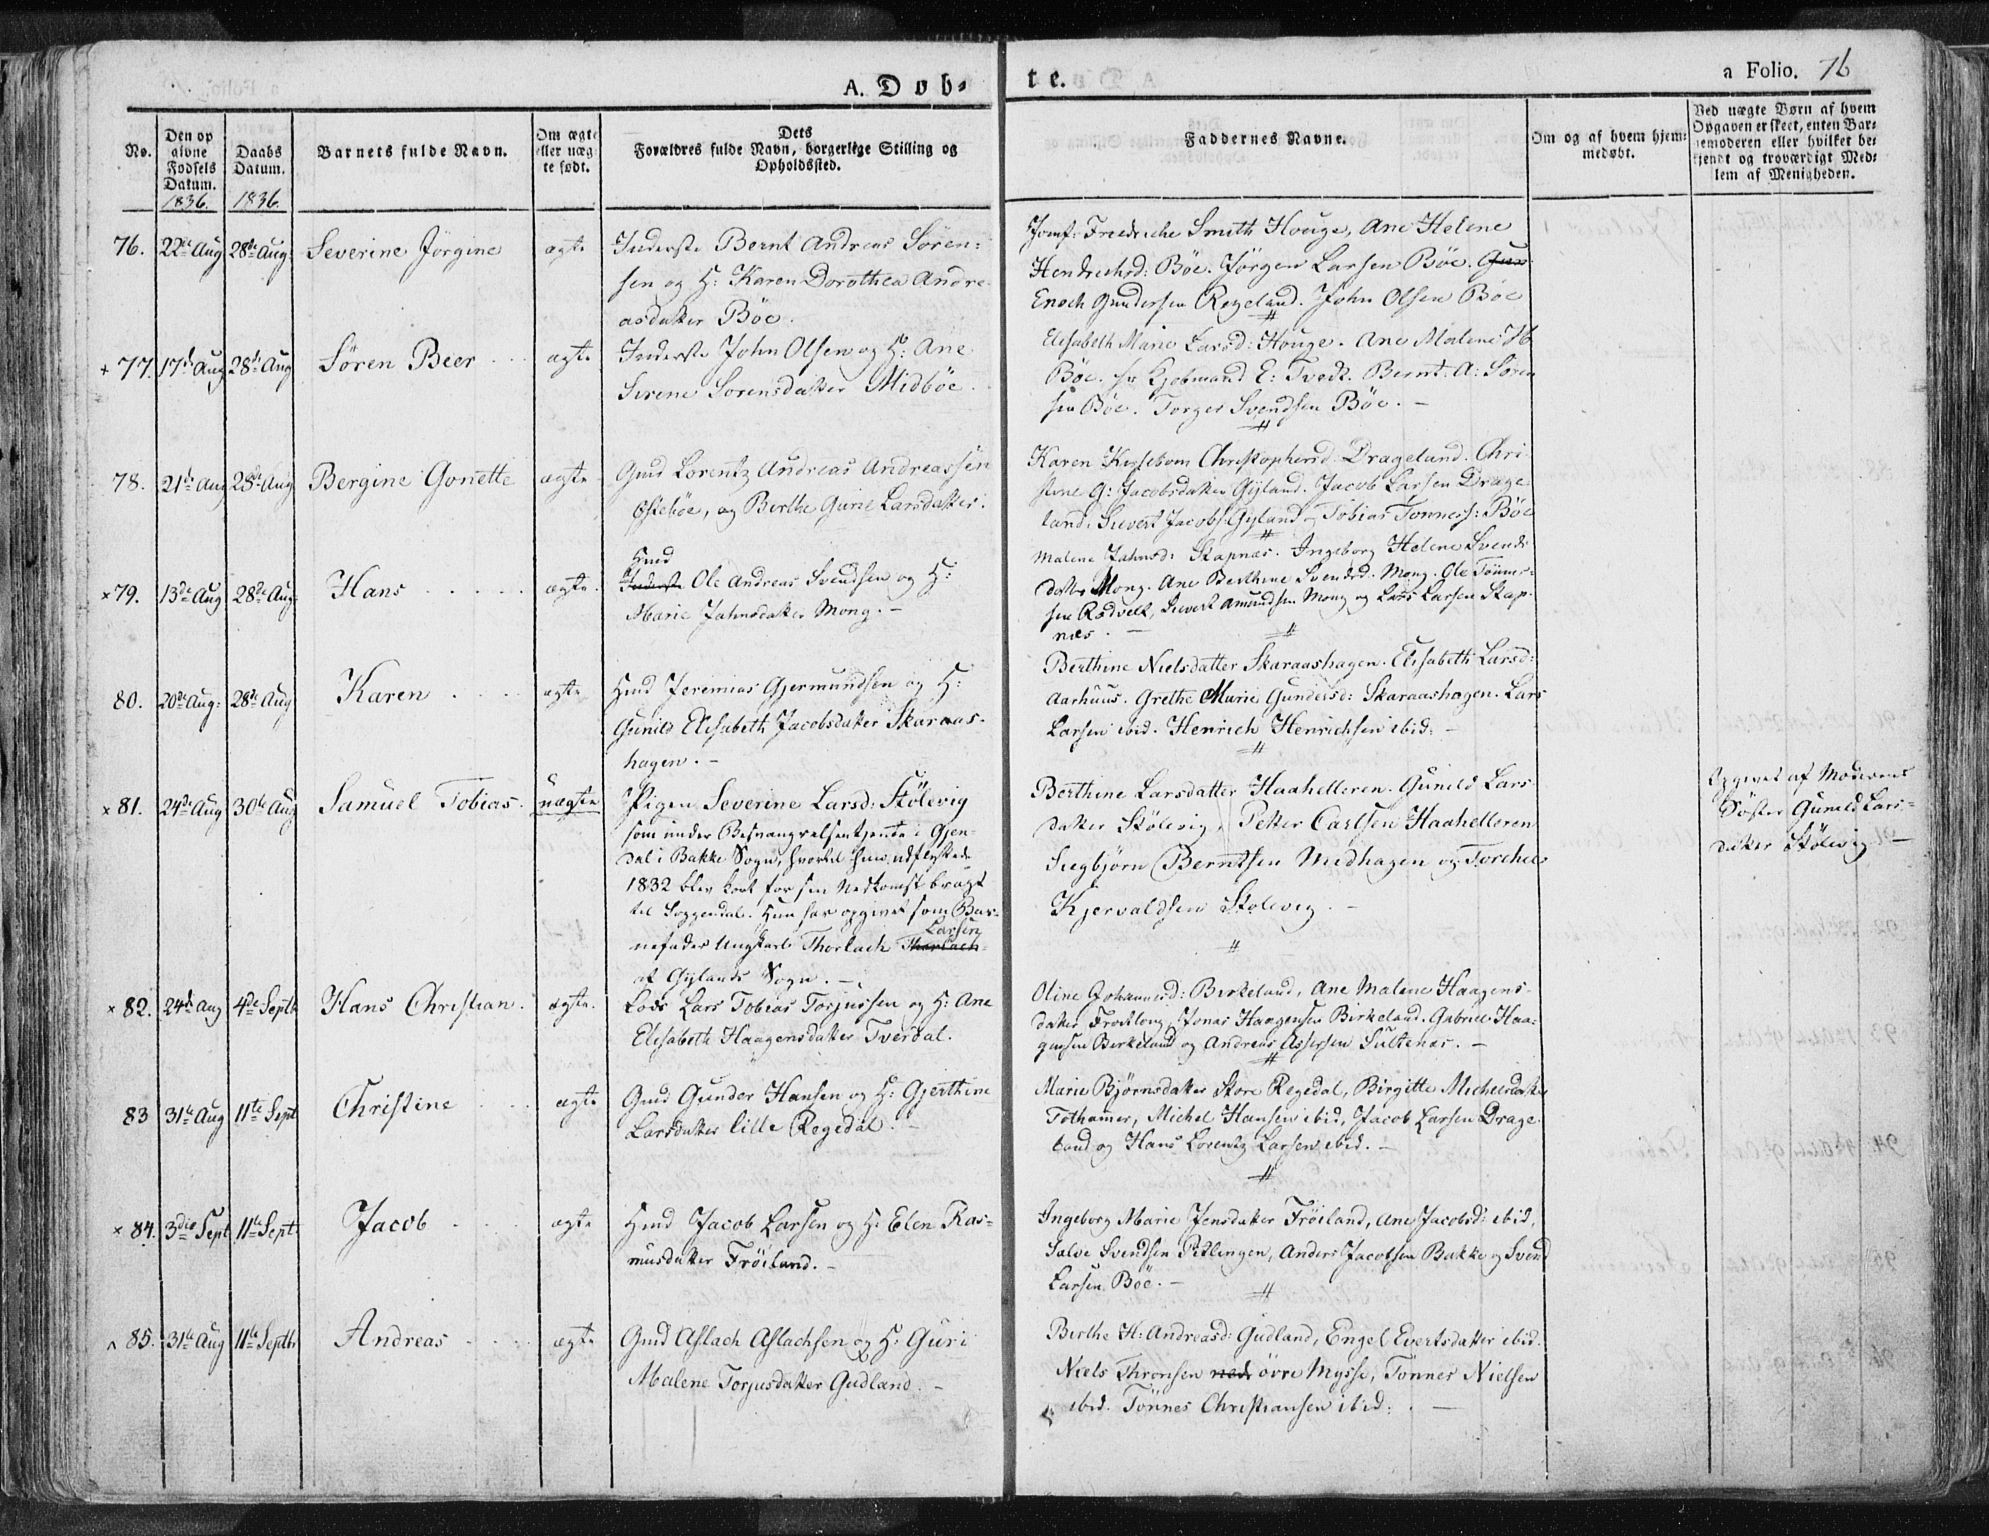 A. Dob-
te.
a Folio. 76
No.
Den op
givne
Fødsels
Datum.
1836.
Daabs
Datum.
1836.
Barnets fulde Navn.
Om ægte
eller uæg
te født.
Dets
Forældres fulde Navn, borgerlige Stilling og
Opholdssted.
Faddernes Navne.
Om og af hvem hjem-
medøbt.
Ved uægte Børn af hvem
Opgaven er skeet, enten Bar-
nemoderen eller hvilket be-
kjendt og troværdigt Med-
lem af Menigheden.
76. 22de Aug 28de Aug: Severine Jörgine ægte
Inderste Bernt Andreas Sören-
sen og H: Karen Dorothea Andre
asdatter Böe.
Jomf: Friedriche Smith Houge, Ane Helene
Hendrichsd: Böe. Jörgen Larsen Böe. Gun
Enoch Gundersen Regeland. John Olsen Böe
+ 77. 17de Aug 28de Aug Sören Beer ægte
Inderste John Olsen og H: Ane
Serene Sorensdatter Midböe.
Elisabeth Marie Larsd: Houge. Ane Malene
Böe. Hr Kjöbmand E: Tvedt. Bernt: A: Sören
sen Böe. Torger Svendsen Böe. -
78. 21de Aug 28de Aug Bergine Gonette ægte
Gmd Lorentz Andreas Andreassen
Osteböe, og Berthe Gurie Larsdatter.
Karen Christophersd. Drageland. Chri
stine G: Jacobsdatter Gyland. Jacob Larsen Drage
land. Sievert Jacobs: Gyland og Tobias Tönness: Böe
× 79. 13de Aug 28de Aug. Hans ægte.
Hmd
Inderste Ole Andreas Svendsen og H:
Marie Jahnsdatter Mong. -
Malene Jahnsd: Stapnæs. Ingeborg Helene Svends
datter Mong. Ane Berthine Svendsd. Mong. Ole Tönnes-
sen Rödvelt, Sievert Amundsen Mong og Lars Larsen Stap
næs. -
80. 20de Aug: 28de Aug Karen ægte
Hmd Jeremias Gjermundsen og H:
Gunild Elisabeth Jacobsdatter Skaraas-
hagen. -
Berthine Nielsdatter Skaraashagen. Elisabeth Larsd:
Aarhuus. Grethe Marie Gundersd: Skaraashagen. Lars
Larsen ibid. Henrich Henrichsen ibid: -
× 81. 24de Aug 30te Aug Samuel Tobias. uægte
Pigen Severine Larsd: Stölevig
som under Besvangrelsen tjente i Gjen-
dal i Bakke Sogn, hvortil hun udflyttede
1832 blev kort for sin Nedkomst bragt
til Soggendal. Hun har opgivet som Bar-
Larsen
nefader Ungkarl Thorlach Thorlach
af Gylands Sogn. -
Berthine Larsdatter Haahelleren. Gunild Lars
datter Stölevig, Petter Carlsen Haahelleren
Siegbjörn Berntsen Midhagen og Torchel
Kjervaldsen Stölevig. -
Opgivet af Moderens
Söster Gunild Lars-
datter Stölevig -
× 82. 24de Aug 4de Septb Hans Christian. ægte.
Lods Lars Tobias Torjussen og H: Ane
Elisabeth Haagensdatter Tverdal.
Oline Johannesd: Birkeland, Ane Malene Haagens-
datter, Jonas Haagensen Birkeland. Gabriel Haa-
gensen Birkeland og Andreas Assersen Sultenæs. -
83 31te Aug 11te Sept Christine ægte
Gmd Gunder Hansen og H: Gjerthine
Larsdatter lille Regedal. -
Marie Björnsdatter Store Regedal, Birgitte Michelsdatter
Tothamer, Michel Hansen ibid, Jacob Larsen Drage
land og Hans Lorentz Larsen ibid. -
× 84. 3die Sept 11te Sept: Jacob ægte
Hmd Jacob Larsen og H: Elen Ras-
musdatter Fröiland. -
Ingeborg Marie Jensdatter Fröiland, Ane Jacobsd: ibid,
Salve Svendsen Pitlingen, Anders Jacobsen Bakke og Svend
Larsen Böe. -
85. 31te Aug 11te Septbr Andreas ægte
Gmd Aslach Aslachsen og H: Guri
Malene Torjusdatter Gudland. -
Berthe H: Andreasd: Gudland, Engel Evertsdatter ibid.
Niels Thronsen ned övre Mysse, Tönnes Nielsen
ibid. Tönnes Christiansen ibid. -